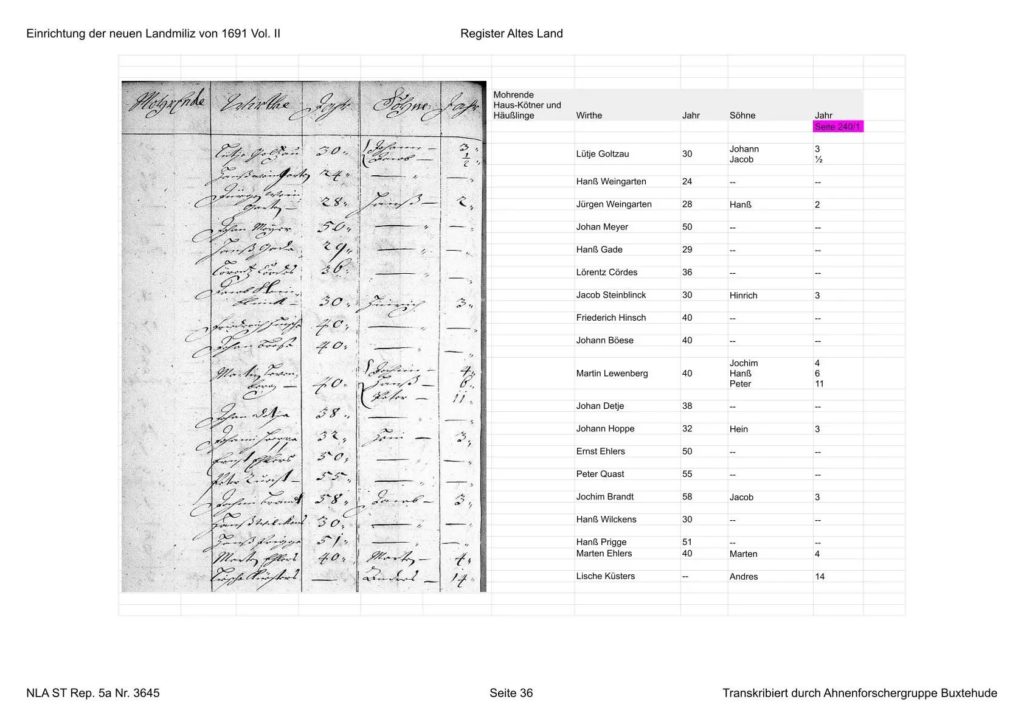 Einrichtung der neuen Landmiliz von 1691 Vol. II Register Altes Land
Mohrende Wirthe Jahr Söhne Jahr
Lütje Goltzau 30 Johann 3
Jacob ½
Hanß Weingarten 24
Jürgen Wein
garten 28 Hanß 2
Johan Meyer 50
Hanß Gade 29
Lörentz Cördes 36
Jacob Stein
blinck 30 Hinrich 3
Friederich Hinsch 40
Johan Böese 40
Jochim 4
Martin Lewen
berg 40 Hanß 6
Peter 11
Johan Detje 38
Johann Hoppe 32 Hein 3
Ernst Ehlers 50
Peter Quast 55
Jochim Brandt 58 Jacob 3
Hanß Wilckens 30
Hanß Prigge 51
Marten Ehlers 40 Marten 4
Lische Küsters — Andres 14
Mohrende
Haus-Kötner und
Häußlinge Wirthe Jahr Söhne Jahr
Seite 240/1
Lütje Goltzau 30 Johann 3
Jacob ½
Hanß Weingarten 24 -- --
Jürgen Weingarten 28 Hanß 2
Johan Meyer 50 -- --
Hanß Gade 29 -- --
Lörentz Cördes 36 -- --
Jacob Steinblinck 30 Hinrich 3
Friederich Hinsch 40 -- --
Johann Böese 40 -- --
Jochim 4
Martin Lewenberg 40 Hanß 6
Peter 11
Johan Detje 38 -- --
Johann Hoppe 32 Hein 3
Ernst Ehlers 50 -- --
Peter Quast 55 -- --
Jochim Brandt 58 Jacob 3
Hanß Wilckens 30 -- --
Hanß Prigge 51 -- --
Marten Ehlers 40 Marten 4
Lische Küsters -- Andres 14
NLA ST Rep. 5a Nr. 3645 Seite 36 Transkribiert durch Ahnenforschergruppe Buxtehude